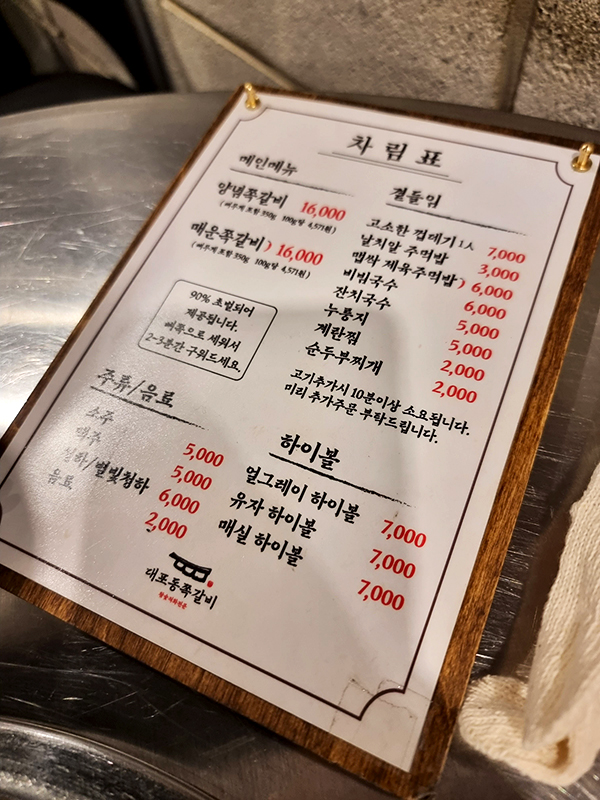 차림표
메인메뉴
양념쪽갈비 16,000
(뼈무게 포함 350g 100g당 4,571원)
매운쪽갈비 16,000
(뼈무게 포함 350g 100g당 4,571원)
90% 초벌되어
제공됩니다.
뼈쪽으로 세워서
2~3분간 구워드세요.
곁들임
고소한 껍데기 1人 7,000
날치알 주먹밥 3,000
맵싹 제육주먹밥 6,000
비빔국수 6,000
잔치국수 5,000
누룽지 5,000
계란찜 2,000
순두부찌개 2,000
고기추가시 10분이상 소요됩니다.
미리 추가주문 부탁드립니다.
주류/음료
소주 5,000
맥주 5,000
청하/별빛청하 6,000
음료 2,000
하이볼
얼그레이 하이볼 7,000
유자 하이볼 7,000
매실 하이볼 7,000
대포동쪽갈비